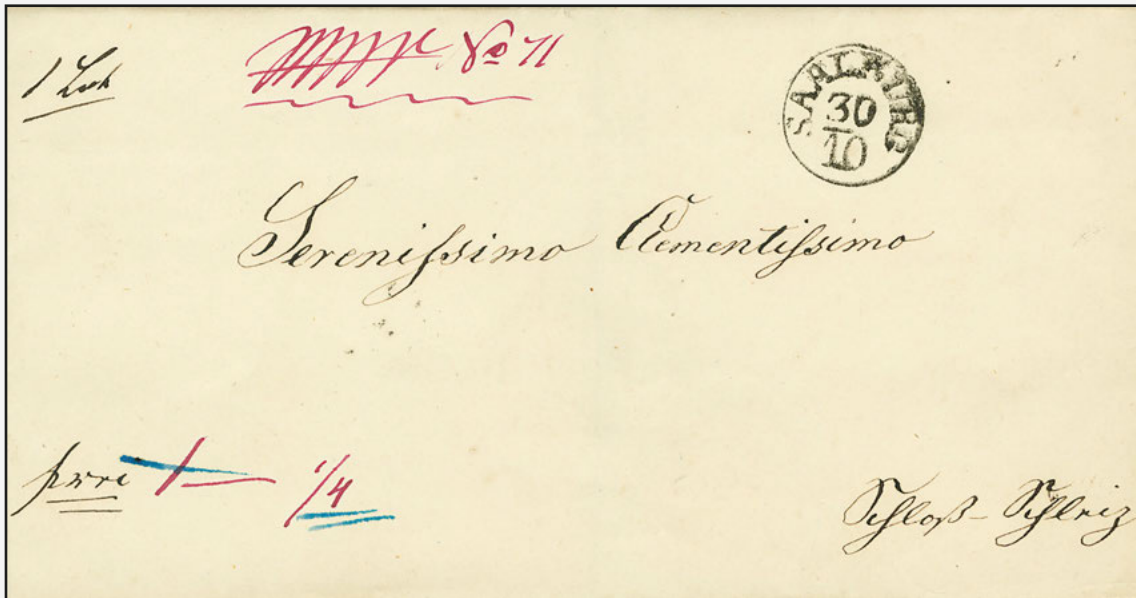 1 Loth
SAALBURG
30
10
Sereniſsimo Clementiſsimo
1/4
Schloß-Schleiz